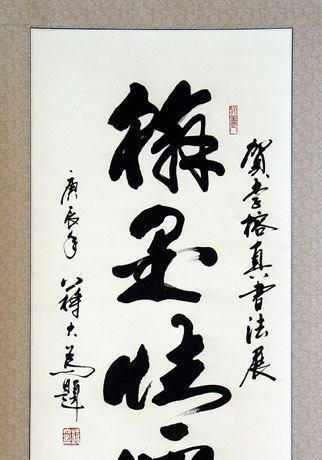 賀李榕真書法展
翰墨情
庚辰年
蔣大為題